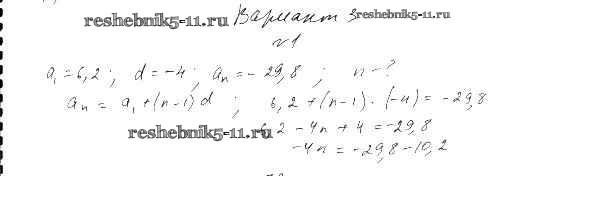 resheshebnik5-11.ru Вариант 3 reshebnik5-11.ru
№1
a₁ = 6,2 ; d = -4 ; aₙ = - 29,8 ; n - ?
aₙ = a₁ + (n-1) d ; 6,2 + (n-1) · (-4) = -29,8
reshebnik5-11.ru 6,2 - 4n + 4 = -29,8
-4n = -29,8 - 10,2